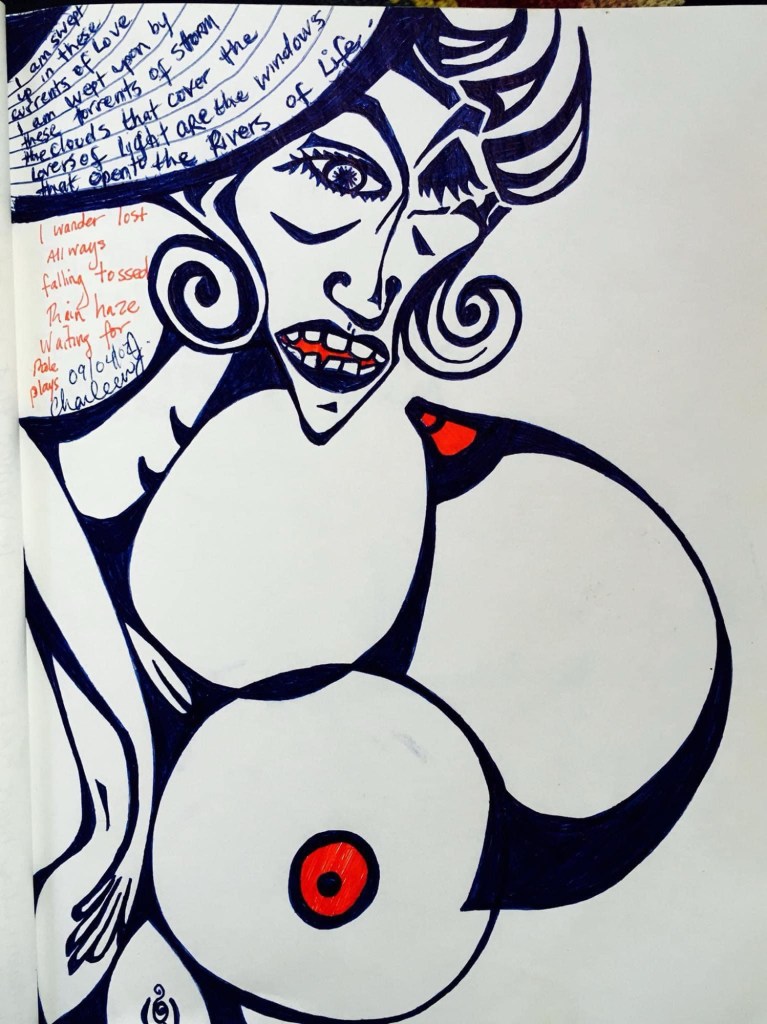 I am swept
up in these
currents of Love
I am wept upon by
these torrents of storm
the clouds that cover the
layers of light are the windows
that open to the Rivers of Life.
I wander lost
All ways
falling tossed
Rain haze
Waiting for
Role
plays
09/04/02